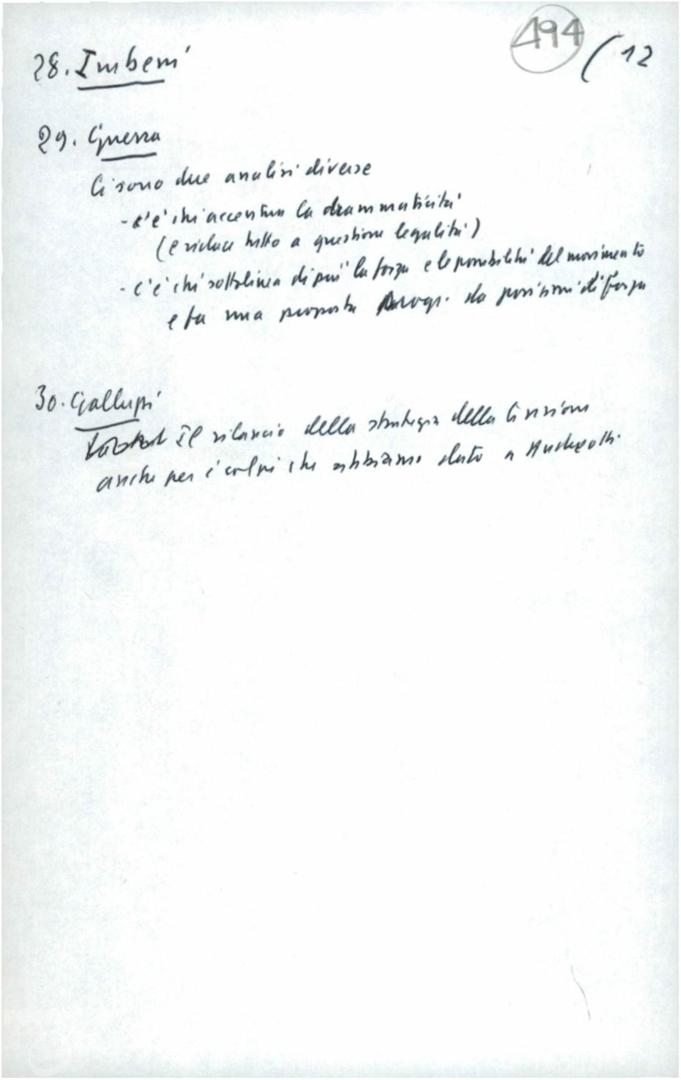 494 (12
28. Imbeni
29. Guerra
Ci sono due analisi diverse
- c'è chi accentua la drammaticità
(e riduce tutto a questione legalità)
- c'è chi sottolinea di più la forza e le possibilità del movimento
e fa una proposta da posizioni di forza
30. Gallupi
Il rilancio della strategia della tensione
anche per i colpi che abbiamo dato a